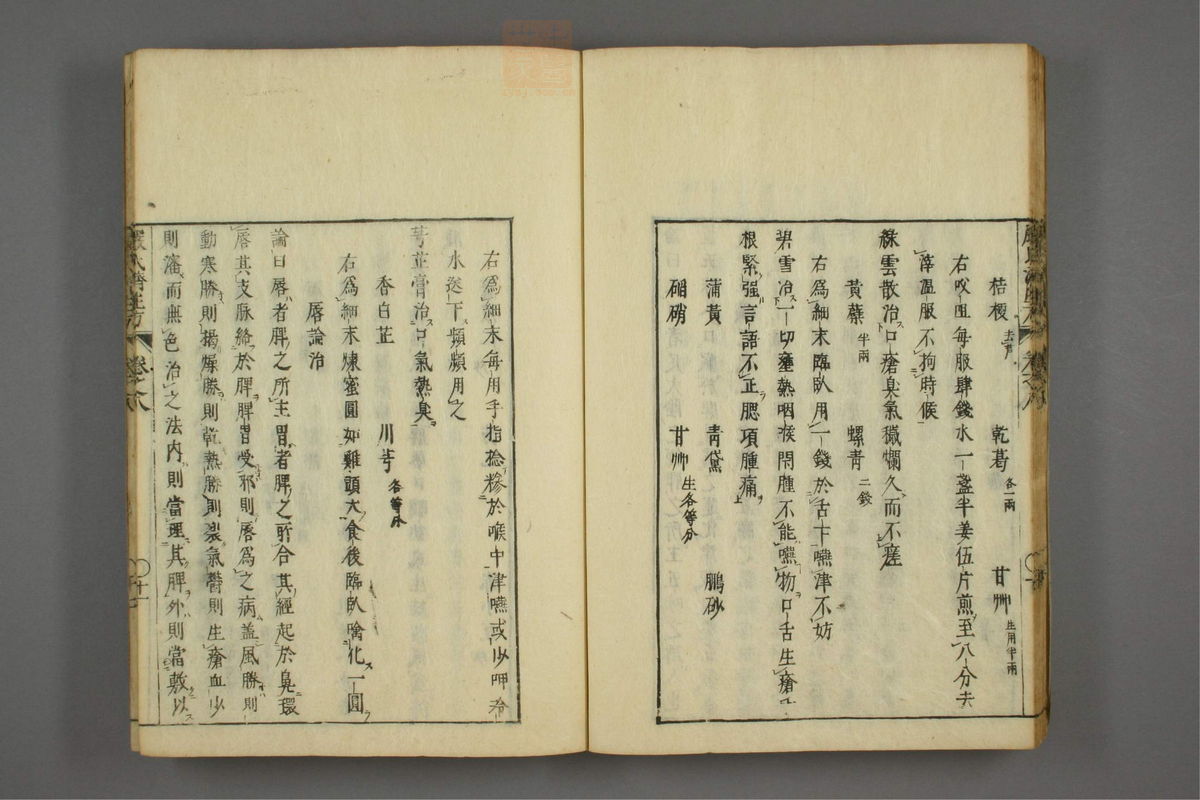 桔梗去芦　乾葛各一兩　甘艸生用半兩
右㕮咀每服肆錢水一盞半姜伍片煎至八分去
滓温服不拘時候
綠雲散治口瘡臭氣穢爛久而不瘥
黃蘗半兩　螺青二錢
右爲細末臨臥用一錢於舌下嚥津不妨
碧雪治一切壅熱咽喉閉腫不能嚥物口舌生瘡
根緊强言語不正腮項腫痛
蒲黃　靑黛　鵬砂
硝　甘艸生各等分
右爲細末每用手指捻糝於喉中津嚥或少呷冷
水送下頻頻用之
芎芷膏治口氣熱臭
香白芷　川芎各等分
右爲細末煉蜜圓如雞頭大食後臨臥噙化一圓
唇論治
論曰唇者脾之所主胃者脾之所合其經起於鼻環
唇其支脉絡於脾脾胃受邪則唇爲之病盖風勝則
動寒勝則揭燥勝則乾熱勝則裂氣鬱則生瘡血少
則瀋而無色治之法内則當理其脾外則當敷以
嚴氏濟生方　卷之八